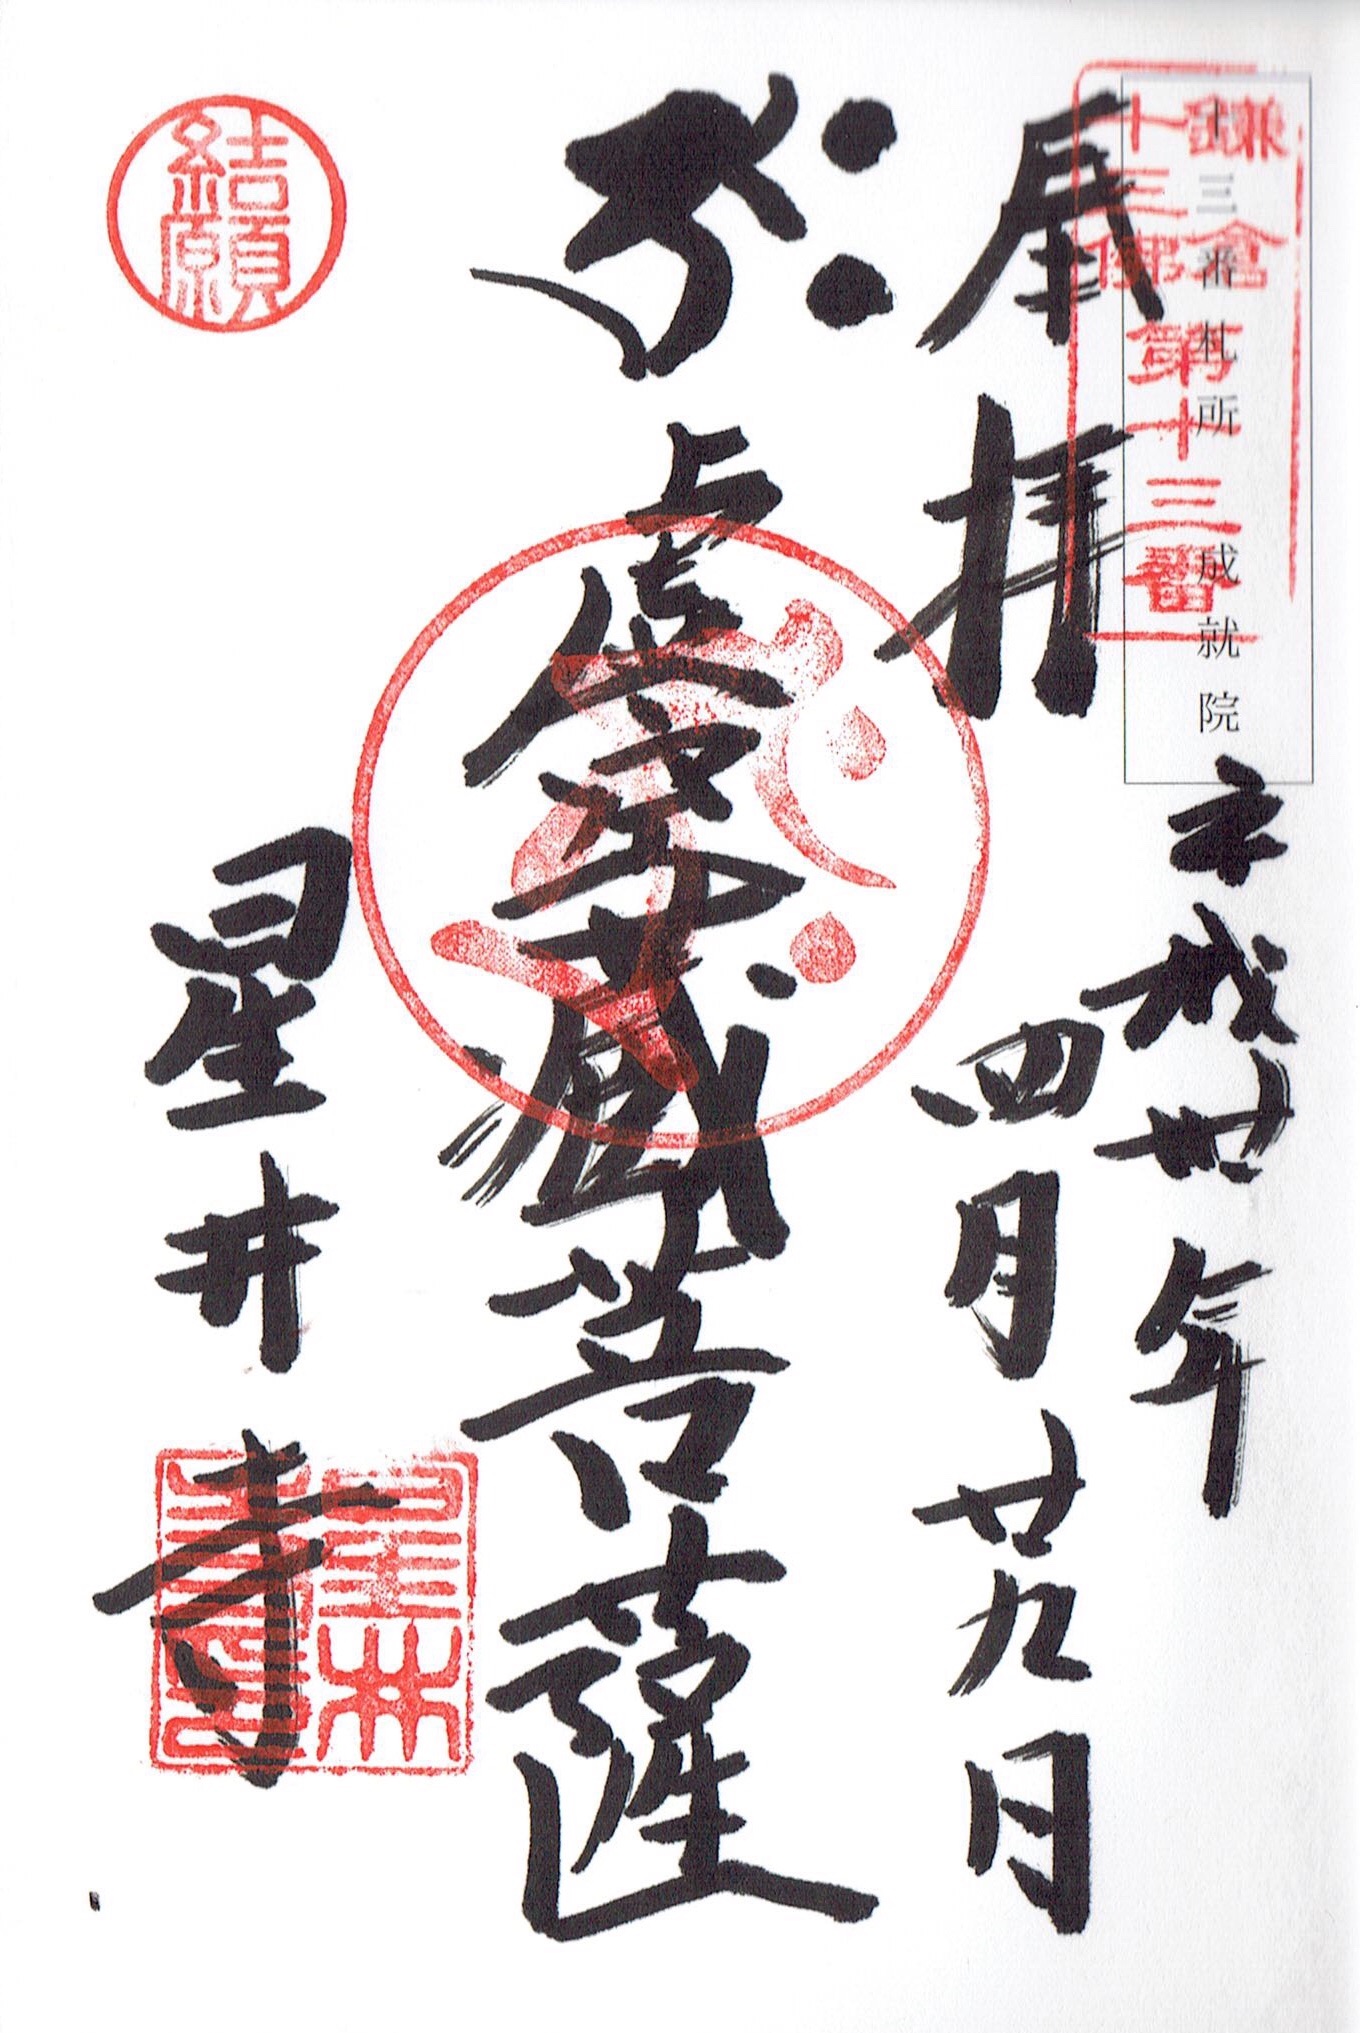 十三番札所 成就院
鎌倉
十三佛
第十三番
奉拝
平成卅年
四月廿九日
虚空蔵菩薩
結願
星井寺